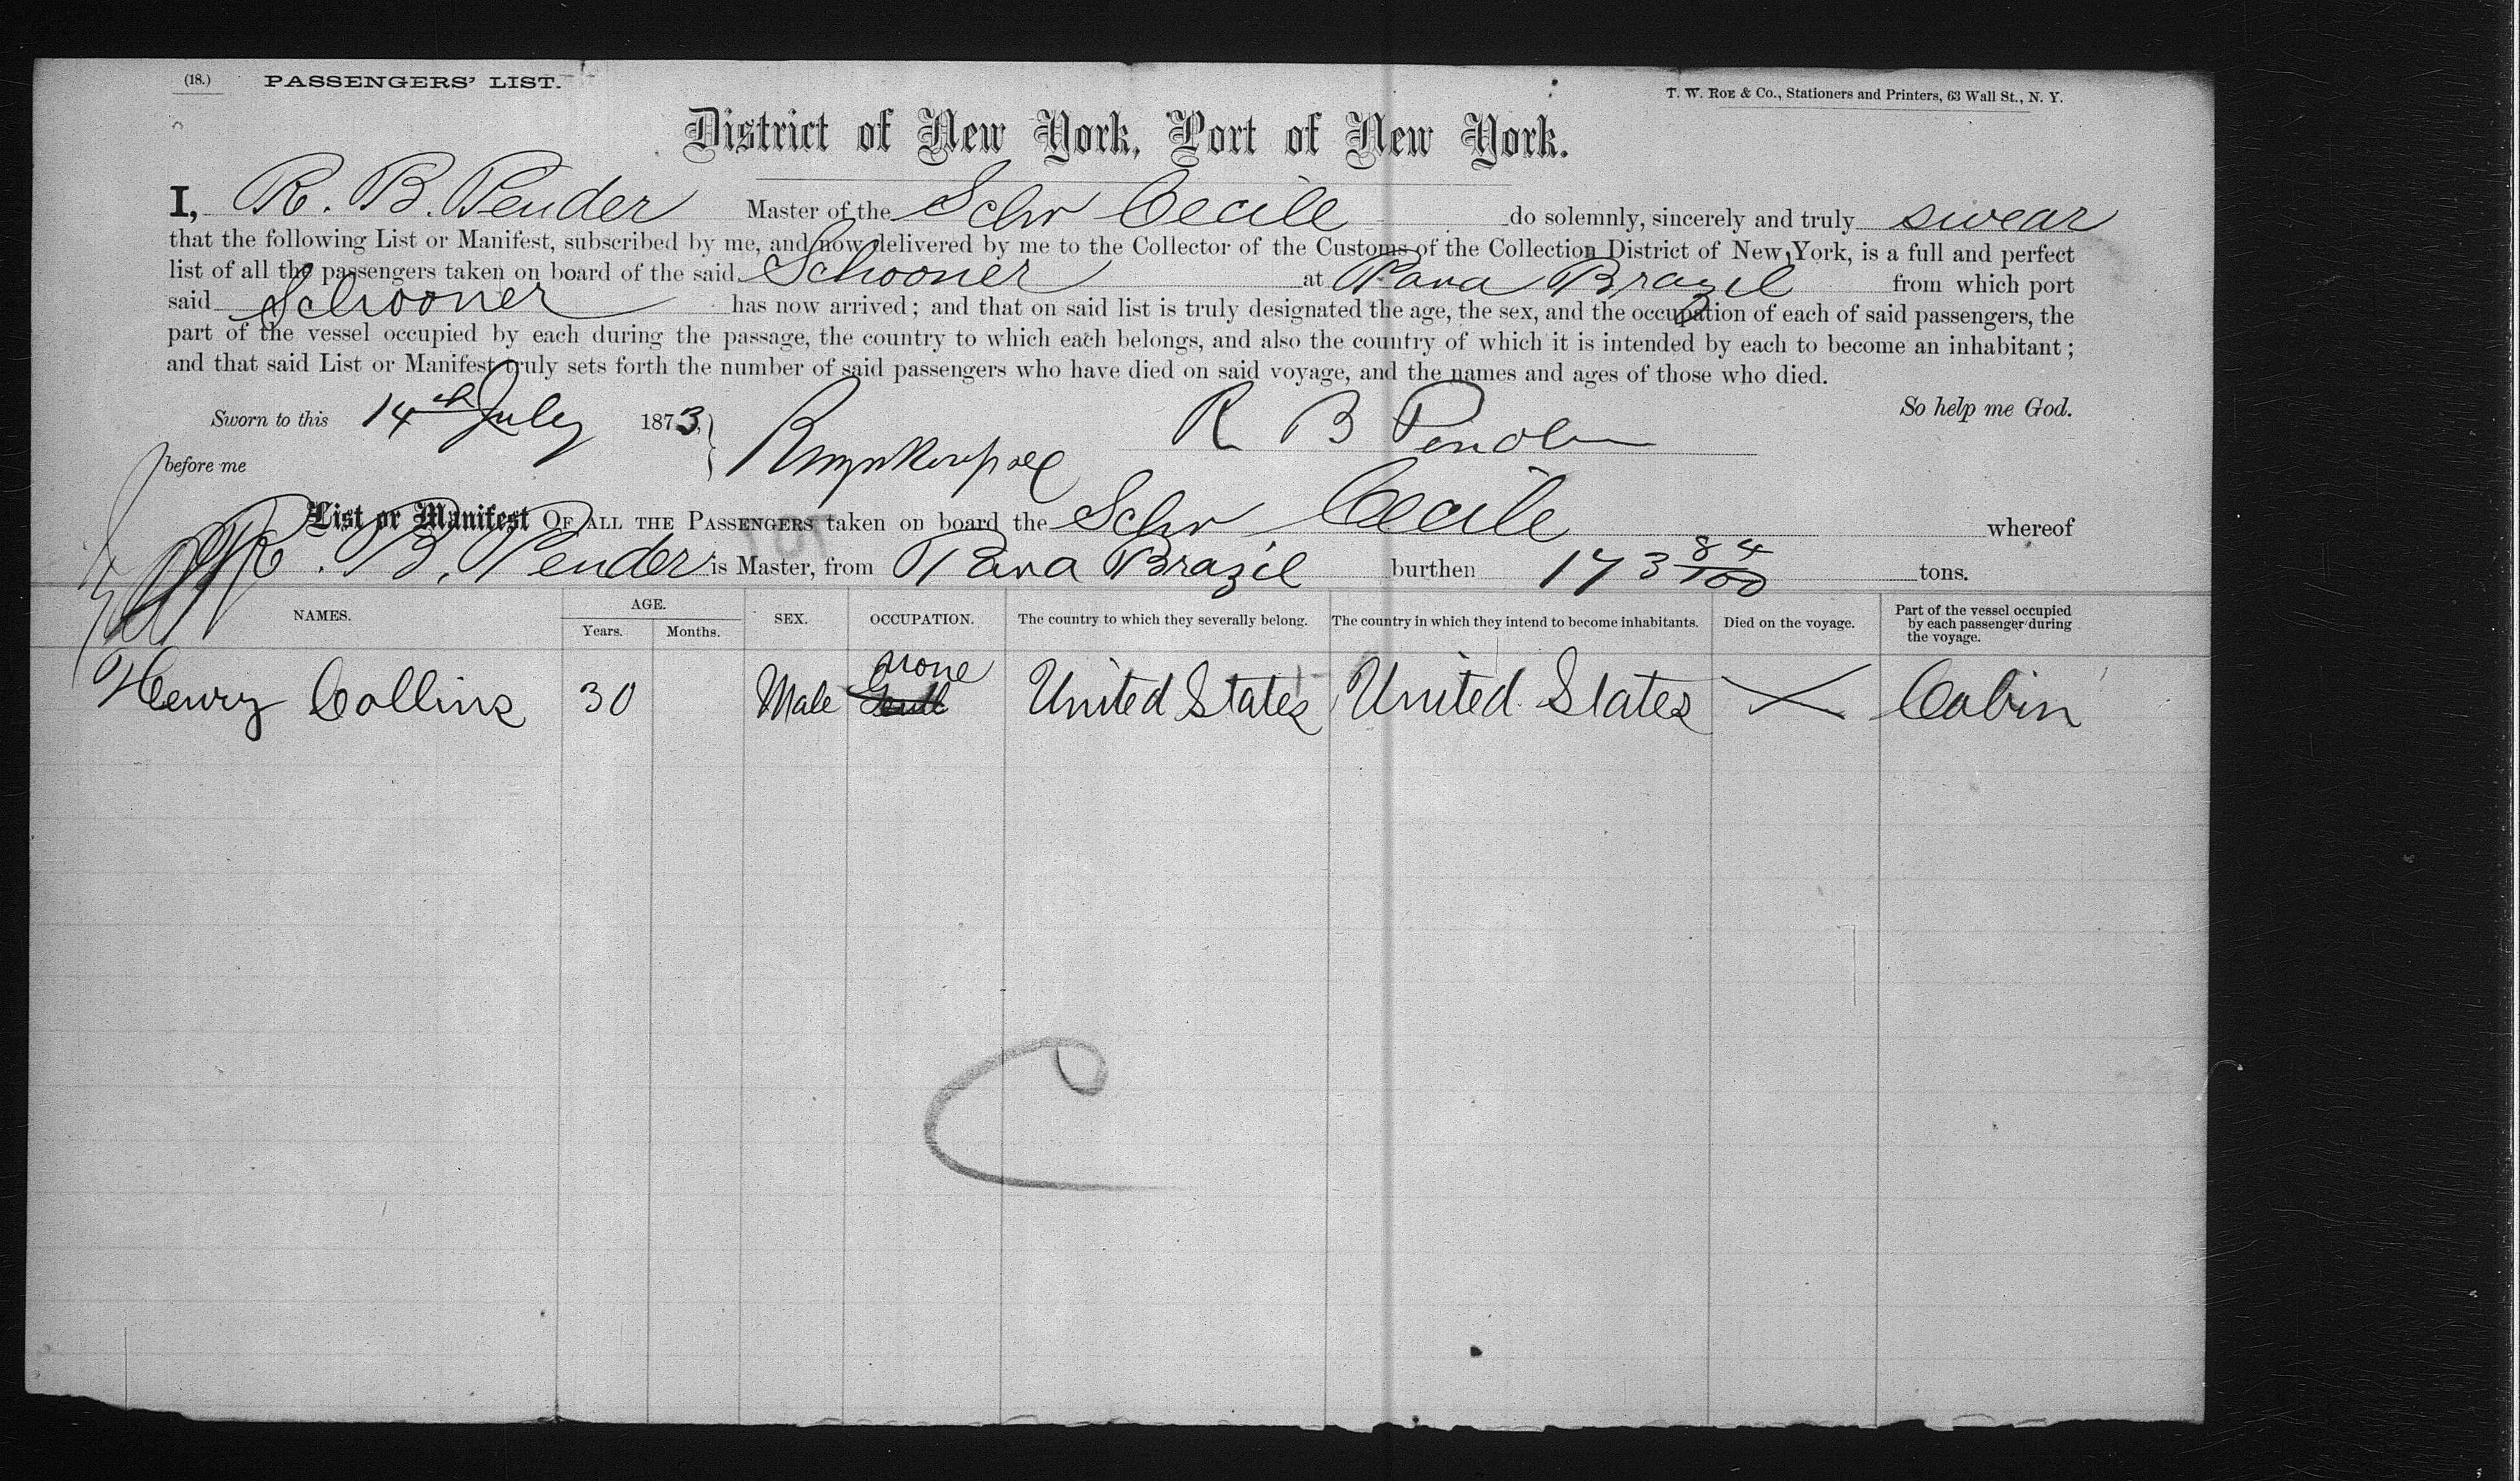 (18.) PASSENGERS' LIST.
T. W. Roe & Co., Stationers and Printers, 63 Wall St., N. Y.
District of New York, Port of New York.
I, R. B. Pender Master of the Schr Cecile do solemnly, sincerely and truly swear
that the following List or Manifest, subscribed by me, and now delivered by me to the Collector of the Customs of the Collection District of New York, is a full and perfect
list of all the passengers taken on board of the said Schooner at Para Brazil from which port
said Schooner has now arrived; and that on said list is truly designated the age, the sex, and the occupation of each of said passengers, the
part of the vessel occupied by each during the passage, the country to which each belongs, and also the country of which it is intended by each to become an inhabitant;
and that said List or Manifest truly sets forth the number of said passengers who have died on said voyage, and the names and ages of those who died.
So help me God.
Sworn to this 14th July 1873, R B Pender
before me
List or Manifest OF ALL THE PASSENGERS taken on board the Schr Cecile whereof
R. B. Pender is Master, from Para Brazil burthen 173 84/100 tons.
NAMES. AGE. Years. Months. SEX. OCCUPATION. The country to which they severally belong. The country in which they intend to become inhabitants. Died on the voyage. Part of the vessel occupied by each passenger during the voyage.
none
Henry Collins 30 Male United States United States X Cabin
C